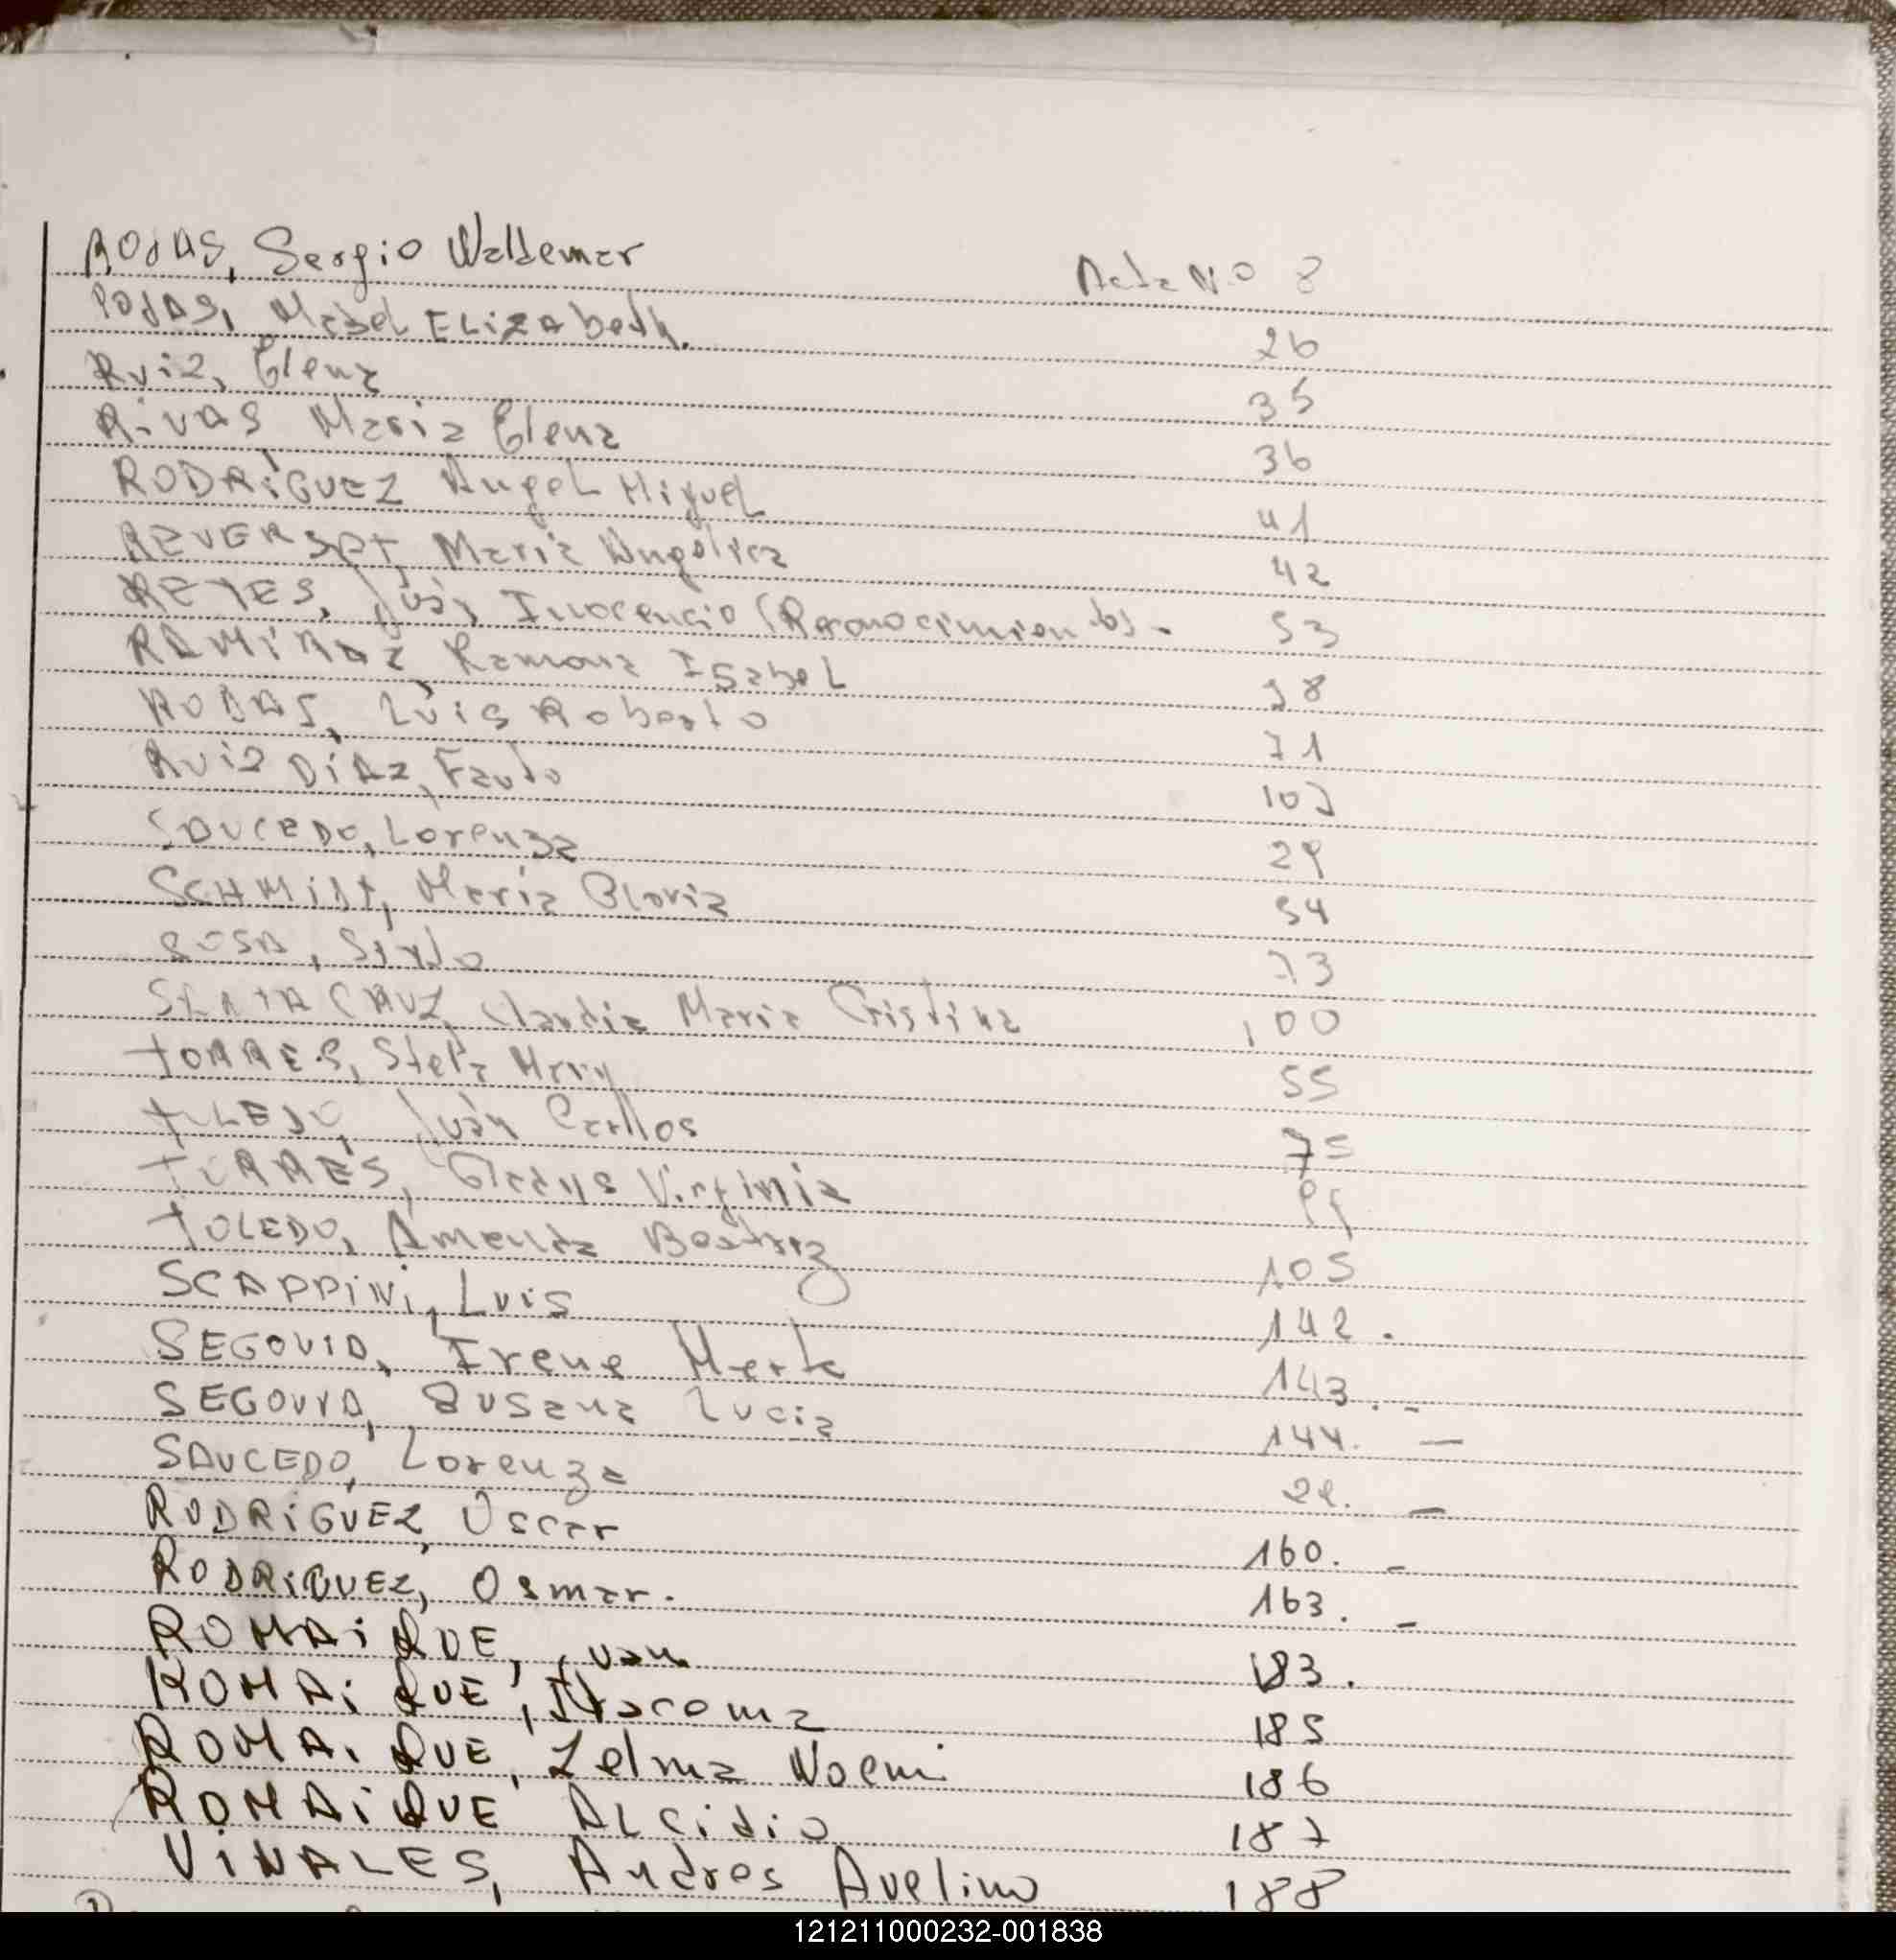 ROJAS, Sergio Waldemar Acta N.o 8
ROJAS, Mabel ELIZAbeth. 26
Ruiz, Elena 35
Rivas Maria Elena 36
RODRÍGUEZ Angel Miguel 41
Maria Angelica 42
REYES, Juan Inocencio (Reconocimiento). 53
RAMÍREZ Ramona Isabel
ROJAS, Luis Roberto 71
Ruiz DÍAZ, Fausto
SAUCEDO, Lorenza 29
SCHMIDT, Maria Gloria 54
SOSA, 73
SANTA CRUZ, Claudia Maria Cristina 100
TORRES, Stela Mary 55
TOLEDO, Juan Carllos 75
TORRES, Gladys Virginia
TOLEDO, Amanda Beatriz 105
SCAPPINI, Luis 142.
SEGOVIA, Irene Marta 143.-
SEGOVIA, Susana Lucia 144. -
SAUCEDO, Lorenza 29. -
RODRÍGUEZ, Oscar 160. -
RODRIGUEZ, Osmar. 163. -
ROMAiQUE, Juan 183.
ROMAiQUE, 185
ROMAiQUE, Zelma Noemi 186
ROMAiQUE ALcidio 187
ViNALES, Andres Avelino 188
121211000232-001838